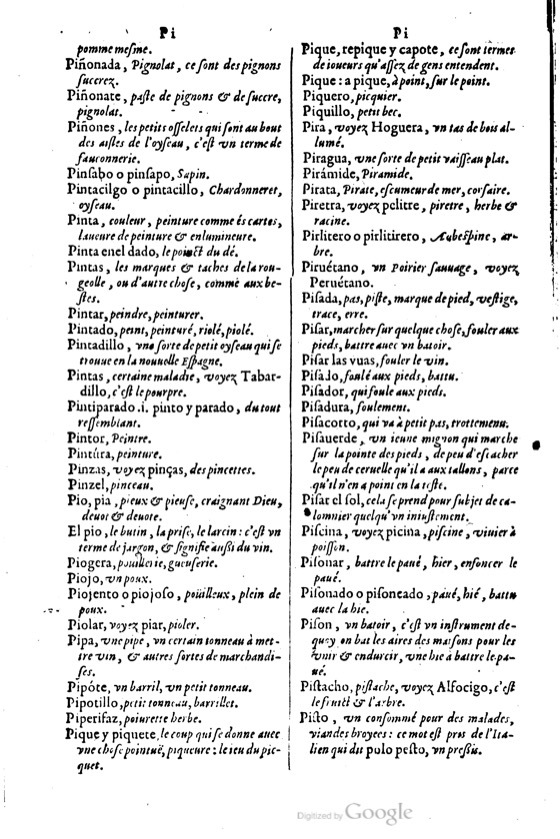 Pi
pomme mesme.
Piñonada, Pignolat, ce sont des pignons
succrez.
Piñonate, paste de pignons & de succre,
pignolat.
Piñones, les petits osselets qui sont au bout
des aisles de l'oyseau, c'est vn terme de
fauconnerie.
Pinsapo o pinsapo, Sapin.
Pintacilgo o pintacillo, Chardonneret,
oyseau.
Pinta, couleur, peinture comme és cartes,
laueure de peinture & enlumineure.
Pinta enel dado, le poinct du dé.
Pintas, les marques & taches de la rou-
geolle, ou d'autre chose, comme aux be-
stes.
Pintar, peindre, peinturer.
Pintado, peint, peinturé, riolé, piolé.
Pintadillo, vne sorte de petit oyseau qui se
trouue en la nouuelle Espagne.
Pintas, certaine maladie, voyez Tabar-
dillo, c'est le pourpre.
Pintiparado .i. pinto y parado, du tout
ressemblant.
Pintor, Peintre.
Pintúra, peinture.
Pinzas, voyez pinças, des pincettes.
Pinzel, pinceau.
Pio, pia, pieux & pieuse, craignant Dieu,
deuot & deuote.
El pio, le butin, la prise, le larcin: c'est vn
terme de jargon, & signifie aussi du vin.
Piogera, pouillerie, gueuserie.
Piojo, vn poux.
Piojento o piojoso, pouilleux, plein de
poux.
Piolar, voyez piar, pioler.
Pipa, vne pipe, vn certain tonneau à met-
tre vin, & autres sortes de marchandi-
ses.
Pipóte, vn barril, vn petit tonneau.
Pipotillo, petit tonneau, barrillet.
Piperifaz, poiurette herbe.
Pique y piquete, le coup qui se donne auec
vne chose pointuë, piqueure: le ieu du pic-
quet.
Pi
Pique, repique y capote, ce sont termes
de ioueurs qu'assez de gens entendent.
Pique: a pique, à point, sur le point.
Piquero, picquier.
Piquillo, petit bec.
Pira, voyez Hoguera, vn tas de bois al-
lumé.
Piragua, vne sorte de petit vaisseau plat.
Pirámide, Piramide.
Pirata, Pirate, escumeur de mer, corsaire.
Piretra, voyez pelitre, piretre, herbe &
racine.
Pirlitero o pirlitirero, Aubespine, ar-
bre.
Piruétano, vn Poirier sauuage, voyez
Peruétano.
Pisada, pas, piste, marque de pied, vestige,
trace, erre.
Pisar, marcher sur quelque chose, fouler aux
pieds, battre auec vn batoir.
Pisar las vuas, fouler le vin.
Pisado, foulé aux pieds, battu.
Pisador, qui foule aux pieds.
Pisadura, foulement.
Pisacorto, qui va à petit pas, trottemenu.
Pisauerde, vn ieune mignon qui marche
sur la pointe des pieds, de peur d'escacher
le peu de ceruelle qu'il a aux tallons, parce
qu'il n'en a point en la teste.
Pisar el sol, cela se prend pour subjet de ca-
lomnier quelqu'vn iniustement.
Piscina, voyez picina, piscine, viuier à
poisson.
Pisonar, battre le paué, hier, enfoncer le
paué.
Pisonado o pisoneado, paué, hié, battu
auec la hie.
Pison, vn batoir, c'est vn instrument de-
quoy on bat les aires des maisons pour les
vnir & endurcir, vne hie à battre le pa-
ué.
Pistacho, pistache, voyez Alfocigo, c'est
le fruict & l'arbre.
Pisto, vn consommé pour des malades,
viandes broyees: ce mot est pros de l'Ita-
lien qui dit pulo pesto, vn pressis.
Digitized by Google